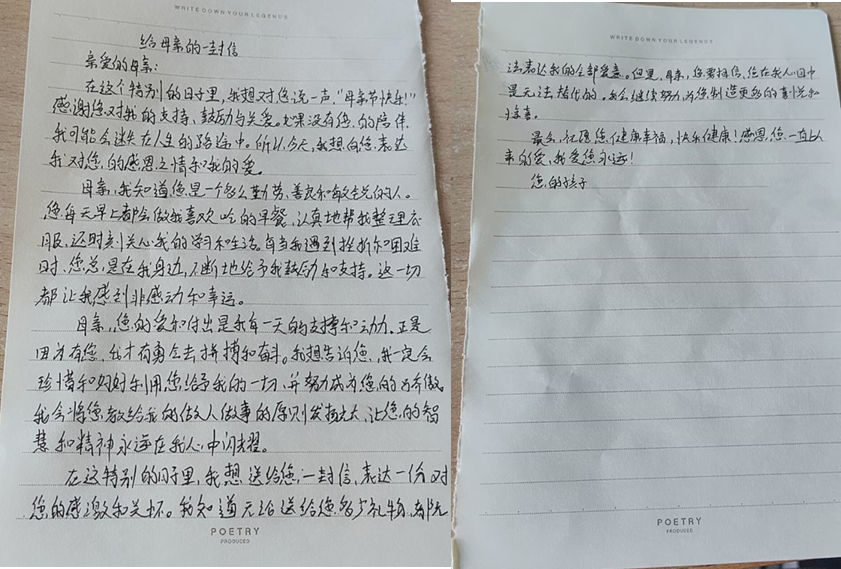 WRITE DOWN YOUR LEGENDS
给母亲的一封信
亲爱的母亲:
在这个特别的日子里,我想对您说一声,"母亲节快乐!"
感谢您对我的支持、鼓励与关爱。如果没有您的陪伴,
我可能会迷失在人生的路途中。所以今天,我想向您表达
我对您的感恩之情和我的爱。
母亲,我知道您是一个多么勤劳、善良和敬业的人。
您每天早上都会做我喜欢吃的早餐,认真地帮我整理衣
服,还时刻关心我的学习和生活。每当我遇到挫折和困难
时,您总是在我身边,不断地给予我鼓励和支持。这一切
都让我感到非感动和幸运。
母亲,您的爱和付出是我每一天的支撑和动力。正是
因为有您,我才有勇气去拼搏和奋斗。我想告诉您,我一定会
珍惜和好好利用您给予我的一切,并努力成为您的骄傲。
我会将您教给我的做人做事的原则发扬光大,让您的智
慧和精神永远在我心中闪耀。
在这特别的日子里,我想送给您一封信,表达一份对
您的感激和关怀。我知道无论送给您多少礼物,都无
POETRY
PRODUCED
WRITE DOWN YOUR LEGENDS
法表达我的全部爱意。但是,母亲,您要相信,您在我心目中
是无法替代的。我会继续努力,为您制造更多的喜悦和
惊喜。
最后,祝愿您健康幸福,快乐健康!感恩您一直以
来的爱,我爱您永远!
您的孩子
POETRY
PRODUCED